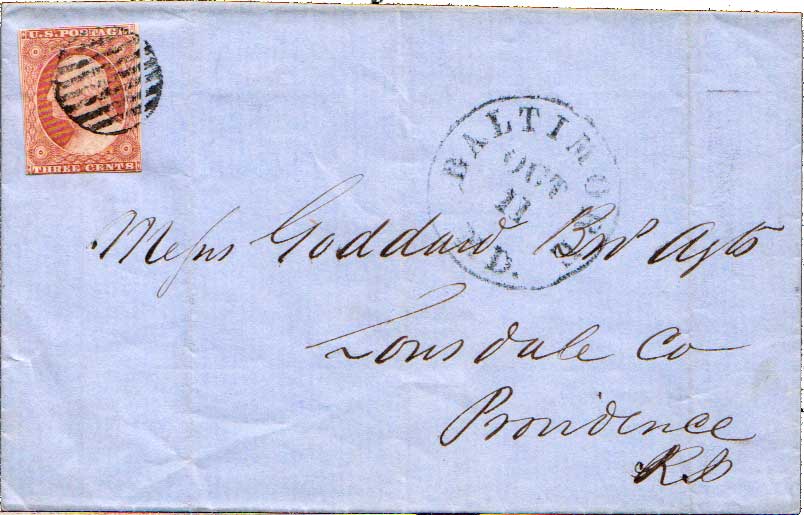 U.S. POSTAGE
THREE CENTS
BALTIMORE
OCT
11
MD.
Messrs Goddard Bros Agts
Lonsdale Co
Providence
RI